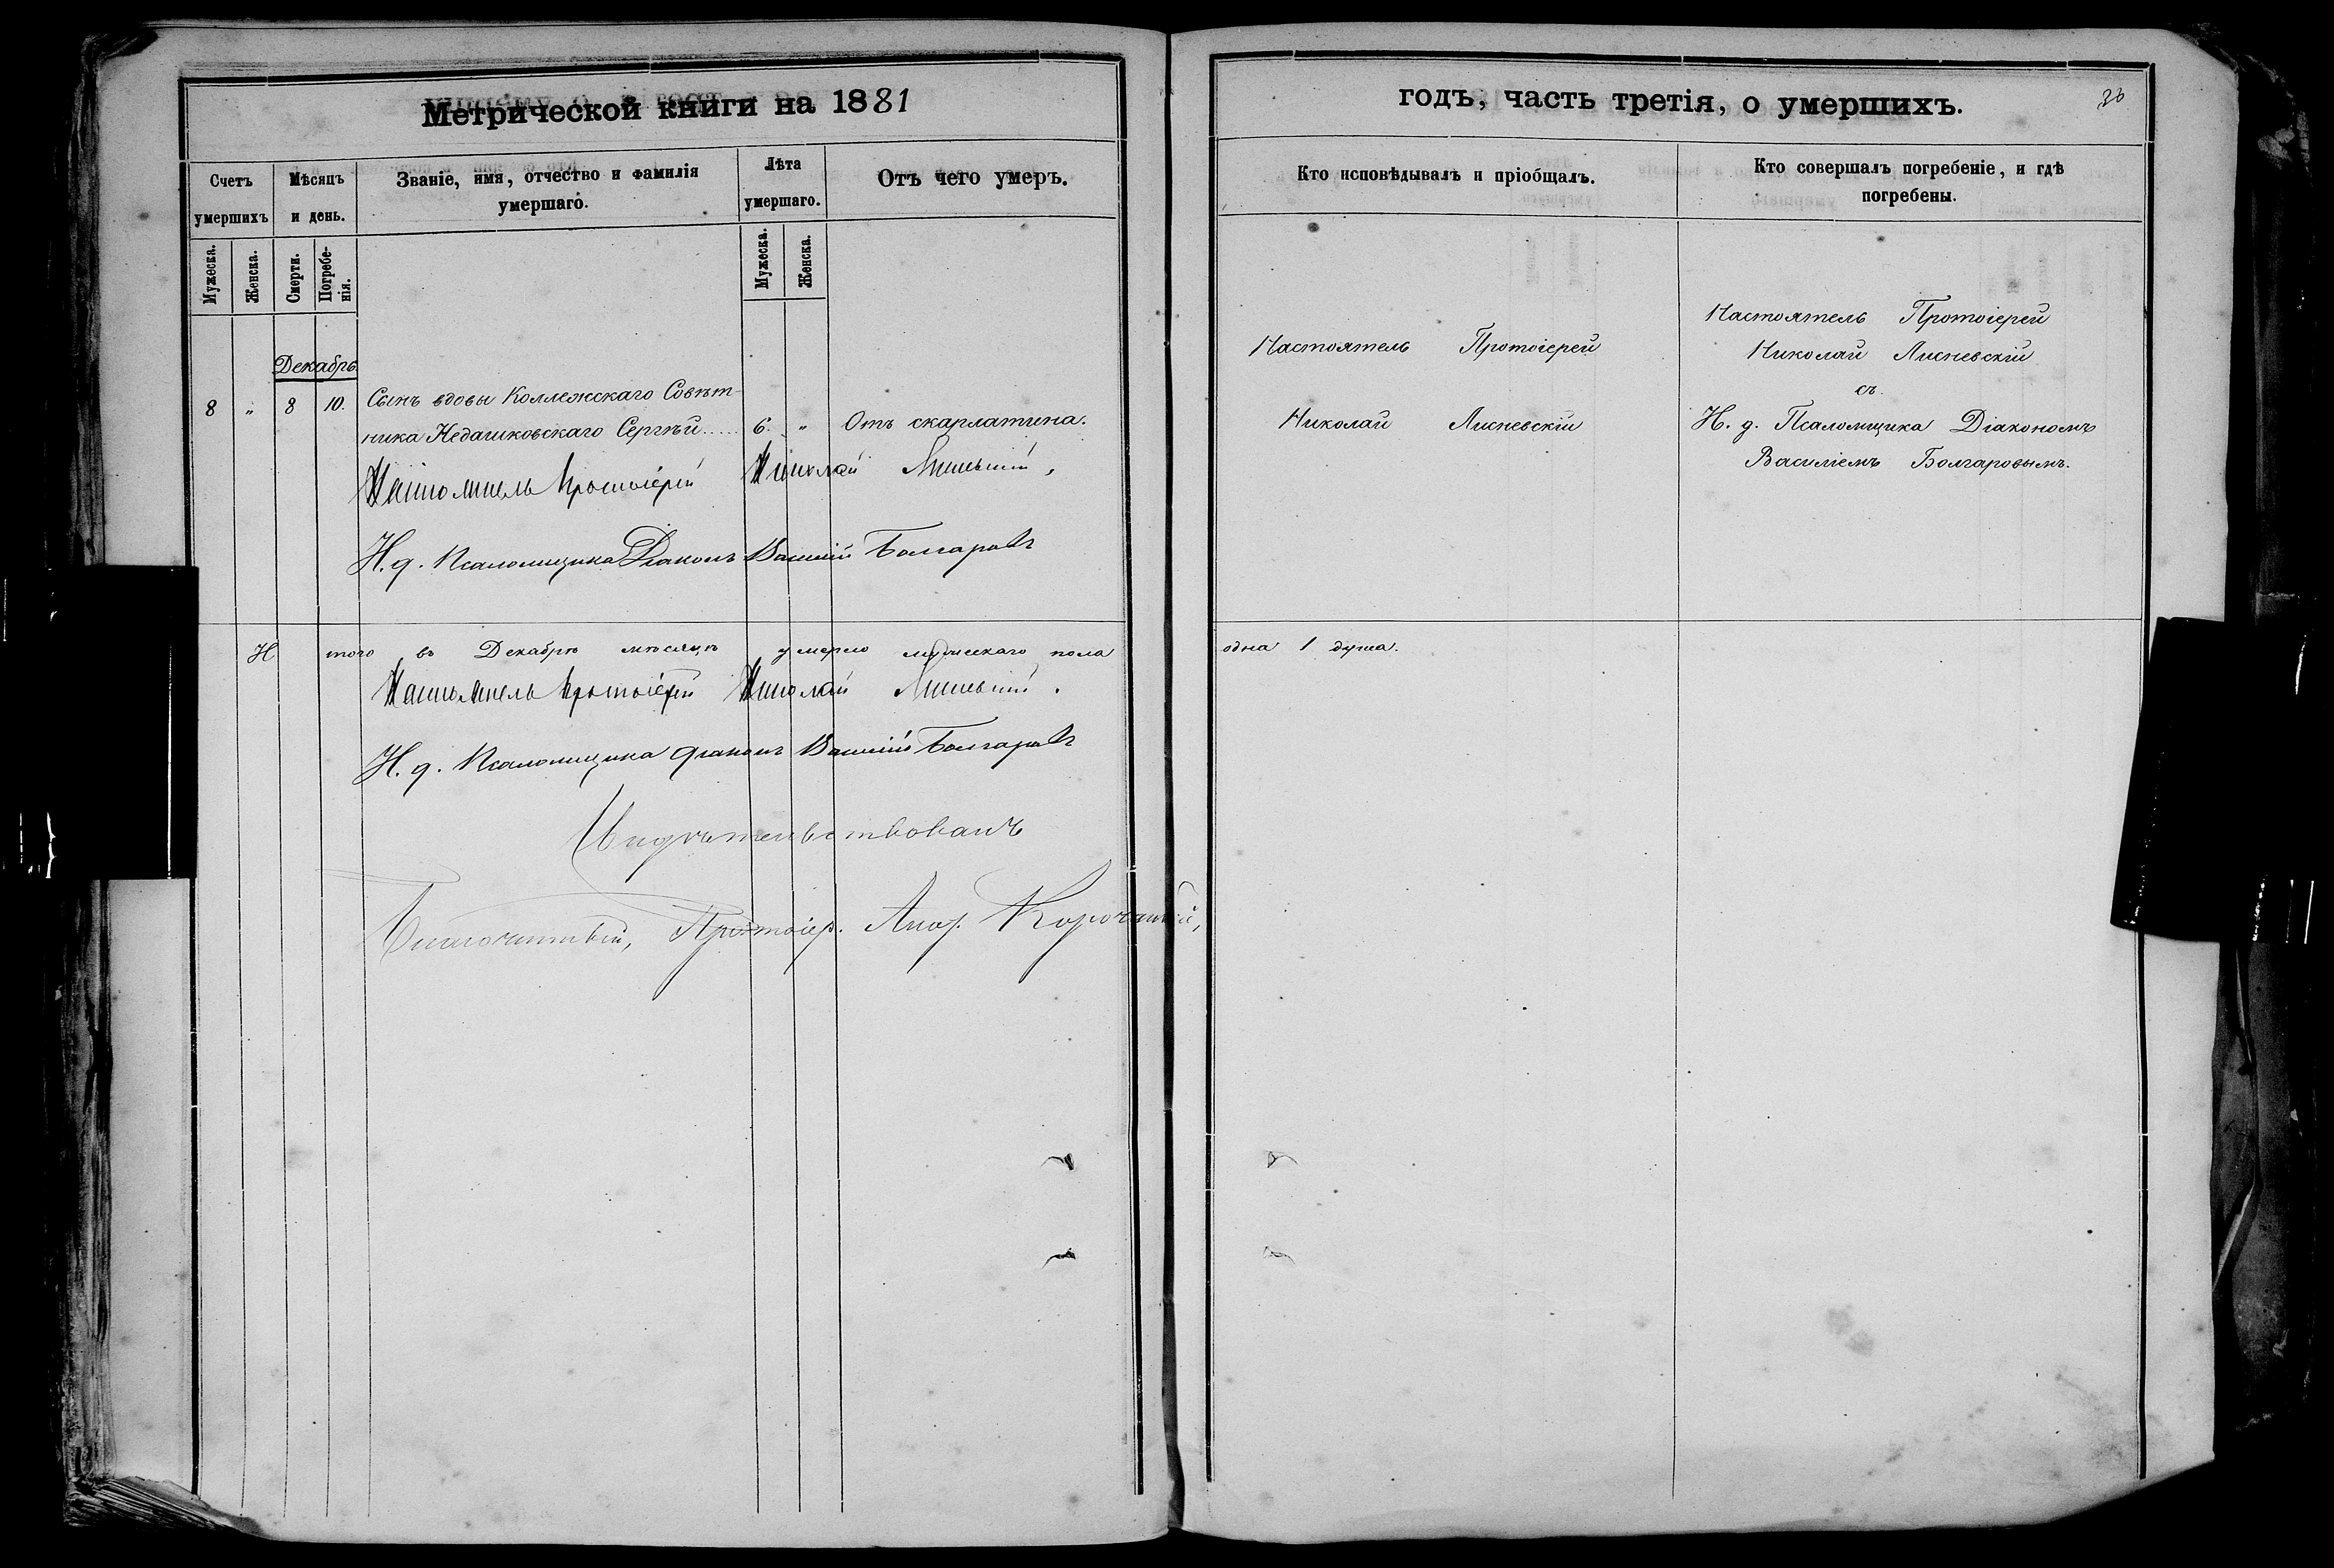 Метрической книги на 1881
Счетъ умершихъ
Мѣсяцъ и день.
Званіе, имя, отчество и фамилія умершаго.
Лѣта умершаго.
Отъ чего умеръ.
Мужеска.
Женска.
Смерти.
Погребе-
нія.
Мужеска.
Женска.
Декабрь
8 " 8 10. Сынъ вдовы Коллежскаго Совѣт-
ника Недашковскаго Сергѣй..... 6. " Отъ скарлатина.
Настоятель Протоіерей Николай Лисневскій.
И. д. Псаломщика Діаконъ Василій Болгаровъ
Итого въ Декабрѣ мѣсяцѣ умерло мужескаго пола
Настоятель Протоіерей Николай Лисневскій.
И. д. Псаломщика діаконъ Василій Болгаровъ
Свидѣтельствовалъ
Благочинный, Протоіер.
годъ, часть третія, о умершихъ.
Кто исповѣдывалъ и пріобщалъ.
Кто совершалъ погребеніе, и гдѣ
погребены.
Настоятель Протоіерей
Николай Лисневскій
Настоятель Протоіерей
Николай Лисневскій
съ.
И. д. Псаломщика Діакономъ
Василіемъ Болгаровымъ.
одна 1 душа.